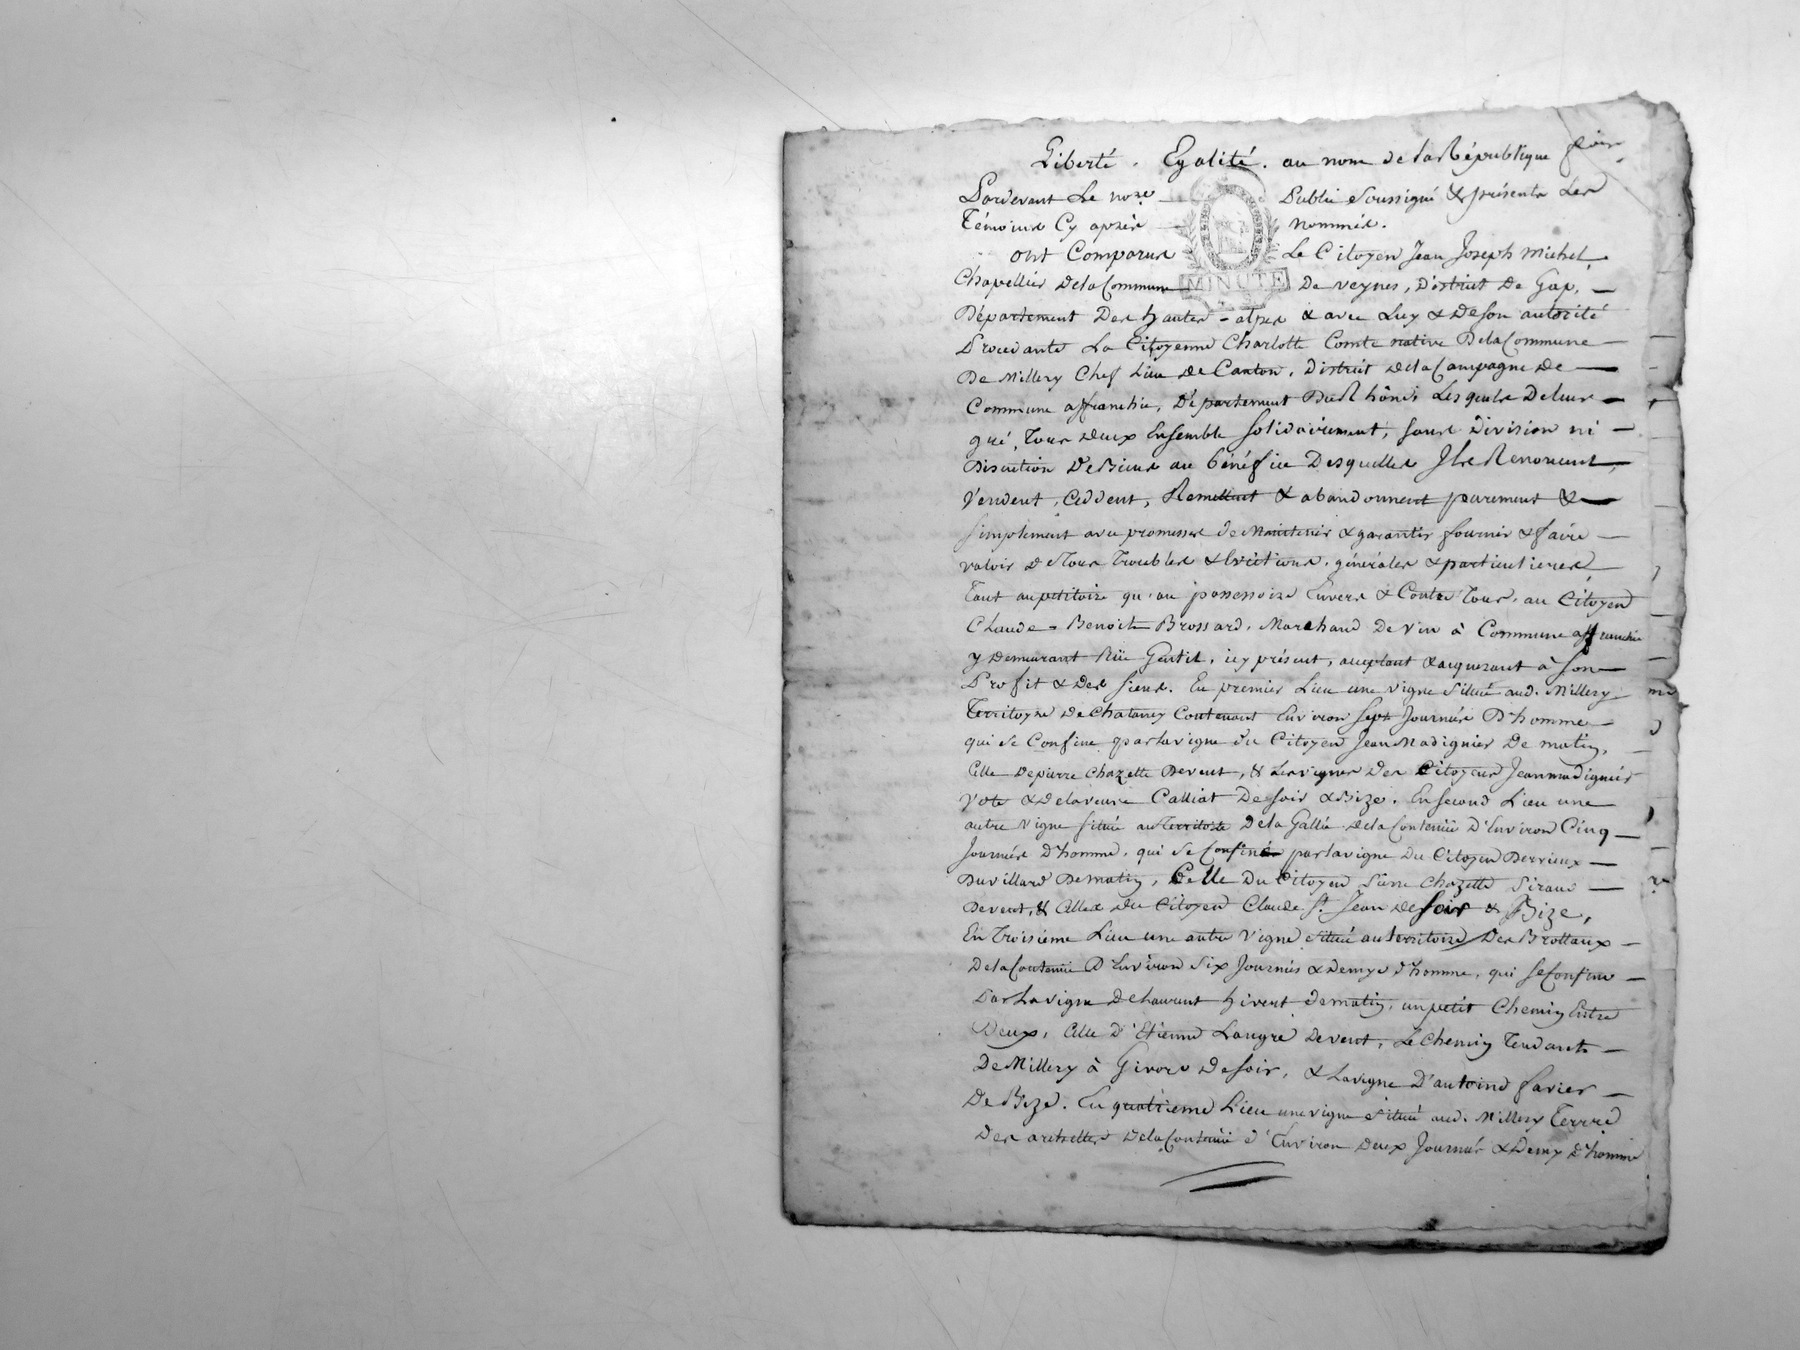 Liberté. Egalité. au nom de la République
Pardevant Le no.re Public Soussigné & présents Les
Témoins Cy après nommés.
MINUTE
ont Comparus Le Citoyen Jean Joseph Michel,
Chapellier de la Commune De veynes, District De Gap,
Département Des hautes-alpes & avec Luy & de son autorité
Procédante La Citoyenne Charlotte Comte native De la Commune
De Millery Chef Lieu de Canton, District de la Campagne De
Commune affranchie, Département Du Rhône, Lesquels De leur
gré, Tous deux Ensemble solidairement, sans Division ni
Discution De Biens au bénéfice Desquelles Ils Renoncent,
Vendent, Cèdent, Remettent & abandonnent purement &
simplement avec promesse de Maintenir & garantir fournir & faire
valoir de Tous Troubles & Evictions, générales & particulieres
Tant au petitoire qu'au possessoire Envers & Contre Tous, au Citoyen
Claude-Benoit Brossard, Marchand De vin à Commune affranchie
y Demeurant Rüe Gentil, icy présent, acceptant & acquérant à son
Profit & des siens. En premier Lieu une vigne située aud. Millery
Territoire de Chatanay Contenant Environ sept Journées D'homme
qui se Confine par la vigne du Citoyen Jean Madignier De matin,
Celle de pierre Chazette De vent, & Les vignes Des Citoyens Jean madignier
& De la veuve Calliat De soir & Bize. En second Lieu une
autre vigne située au Territoire De la Gallée de la Contenüe D'Environ Cinq
Journées d'homme, qui se Confine par la vigne Du Citoyen Derrieux
Duvillard De matin, Celle Du Citoyen Pierre Chazette
De vent, & Celles du Citoyen Claude St. Jean de soir & Bize,
En Troisième Lieu une autre vigne située au territoire Des Brottaux
De la Contenüe D'Environ Six Journées & demye d'homme, qui se Confine
Par La vigne De Laurent de matin, un petit Chemin Entre
Deux, Celle D'Etienne Laugre De vent, Le Chemin Tendant
De Millery à Givors de soir, & La vigne D'antoine favier
De Bize. En quatrième Lieu une vigne située aud. Millery Terre
Des De la Contenüe d'Environ Deux Journées & Demy d'homme